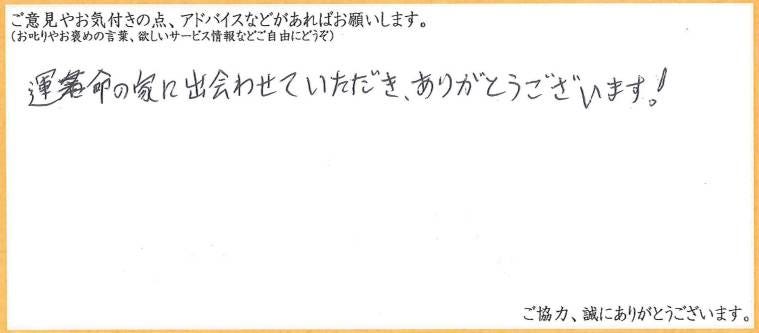 ご意見やお気付きの点、アドバイスなどがあればお願いします。
（お叱りやお褒めの言葉、欲しいサービス情報などご自由にどうぞ）
運命の家に出会わせていただき、ありがとうございます！
ご協力、誠にありがとうございます。